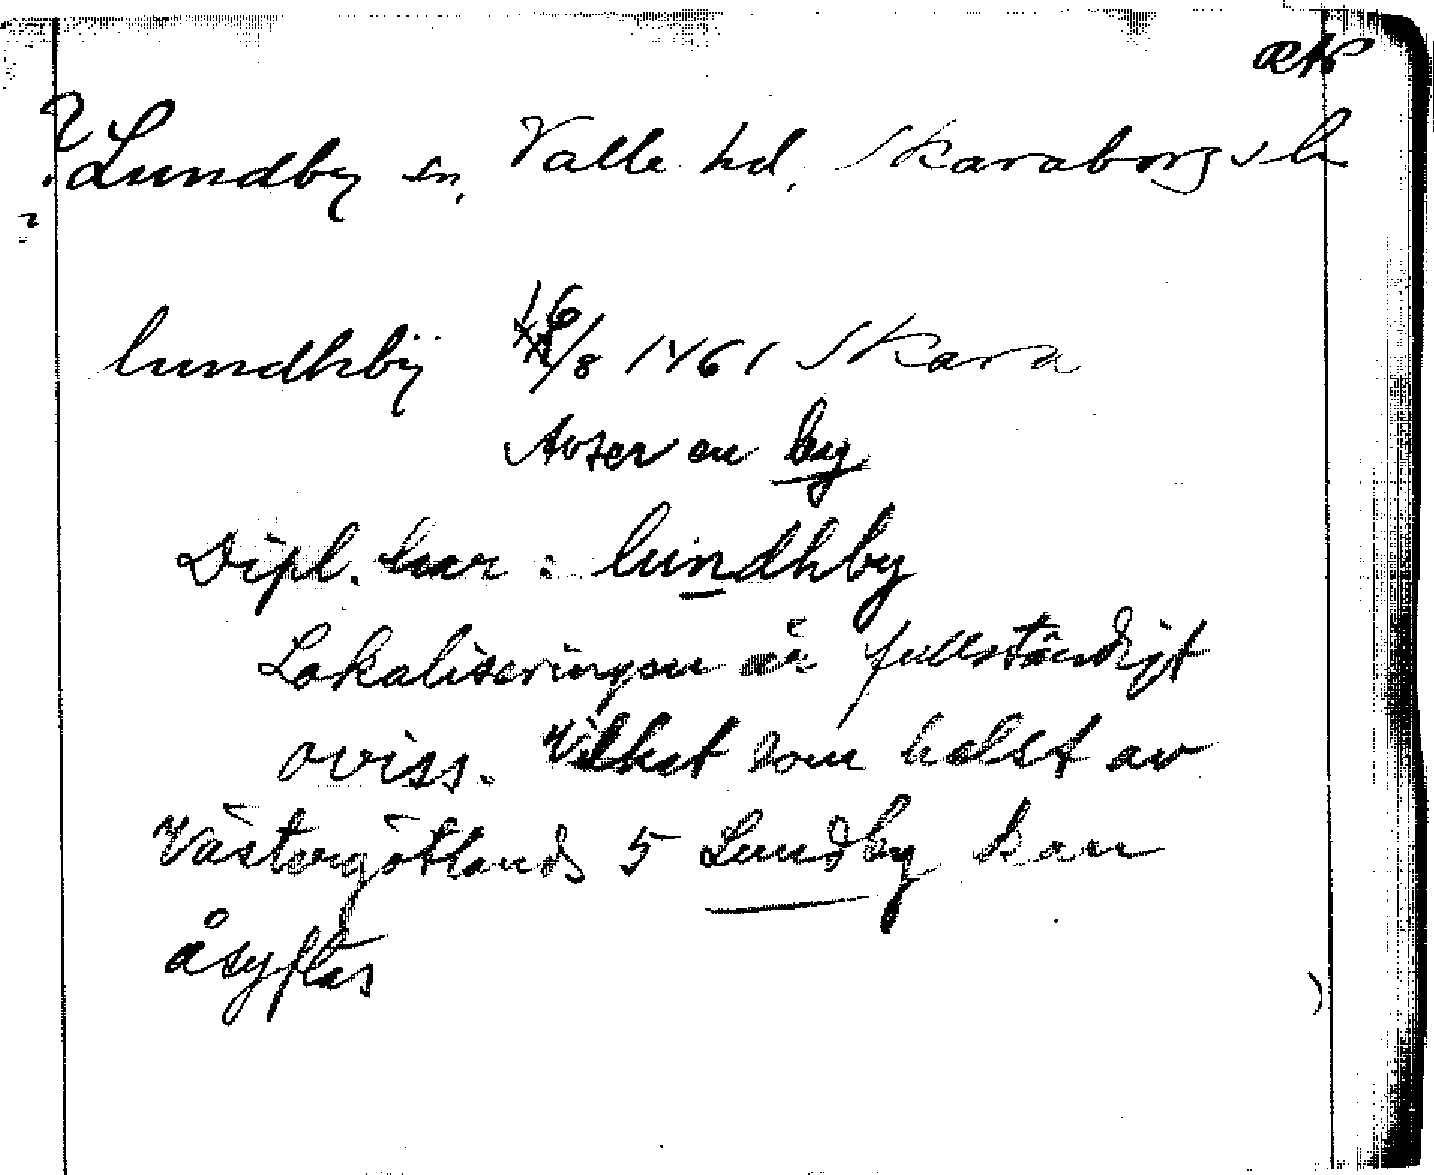 ? Lundby sn, Valle hd, Skaraborgs l
?
lundhbÿ 16/8 1461 Skara
Avser en by
Dipl. har: lundhby
Lokaliseringen är fullständigt
oviss. Vilket som helst av
Västergötlands 5 Lundby kan
åsyftas